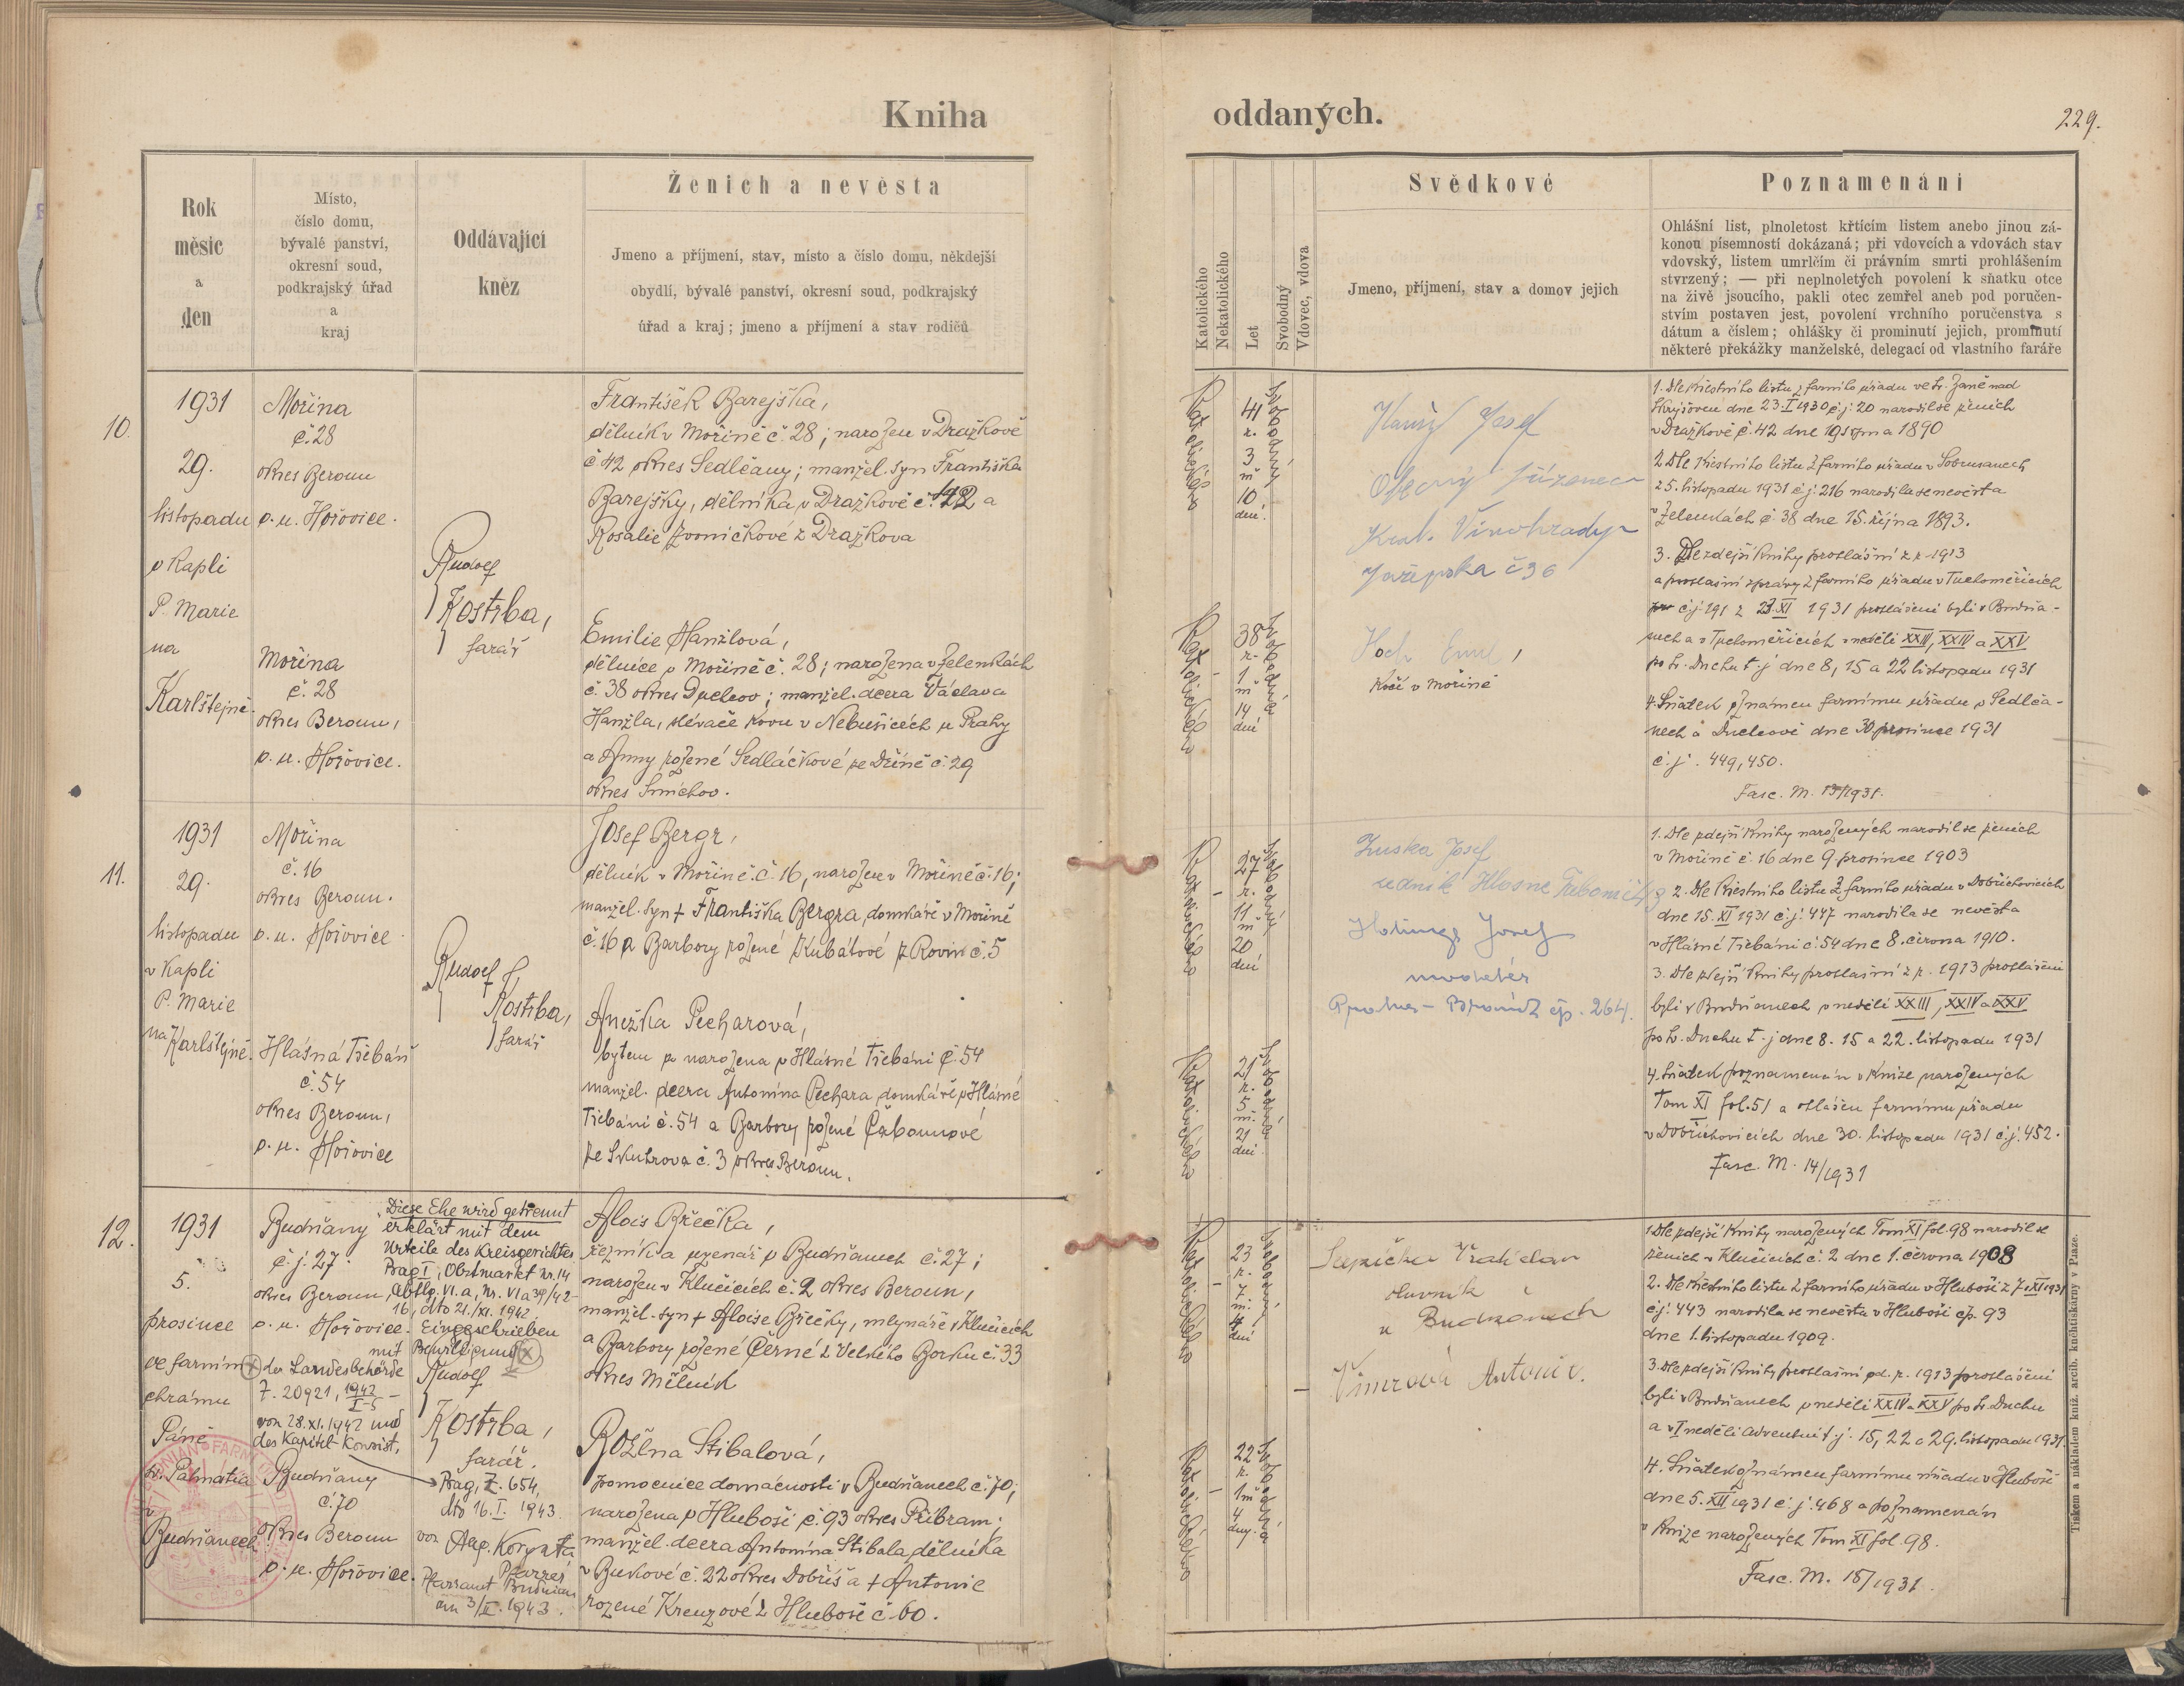 Kniha
oddaných.
229.
Rok
měsíc
a
den
Místo,
číslo domu,
bývalé panství,
okresní soud,
podkrajský úřad
a
kraj
Oddávající
kněz
Ženich a nevěsta
Jmeno a příjmení, stav, místo a číslo domu, někdejší
obydlí, bývalé panství, okresní soud, podkrajský
úřad a kraj; jmeno a příjmení a stav rodičů
Katolického
Nekatolického
Let
Svobodný
Vdovec, vdova
Svědkové
Jmeno, příjmení, stav a domov jejich
Poznamenání
Ohlášní list, plnoletost křtícím listem anebo jinou zá-
konou písemností dokázaná; při vdovcích a vdovách stav
vdovský, listem umrlčím či právním smrti prohlášením
stvrzený; — při neplnoletých povolení k sňatku otce
na živě jsoucího, pakli otec zemřel aneb pod poručen-
stvím postaven jest, povolení vrchního poručenstva s
dátum a číslem; ohlášky či prominutí jejich, prominutí
některé překážky manželské, delegací od vlastního faráře
10.
1931
29.
listopadu
v kapli
P. Marie
na
Karlštejně.
Mořina
č. 28
okres Beroun
p. u. Hořovice.
Mořina
č. 28
okres Beroun,
p. u. Hořovice.
Rudolf
Kostrba,
farář
František Barejška,
dělník v Mořině č. 28; narozen v Dražkově
č 42 okres Sedlčany; manžel. syn Františka
Barejšky, dělníka v Dražkově č. 42 a
Rosalie Zvoníčkové z Dražkova
Emilie Hanzlová,
dělnice v Mořině č. 28; narozena v Želenkách
č. 38 okres Duchcov; manžel. dcera Václava
Hanzla, slévače kovu v Nebušicích u Prahy
a Anny rozené Sedláčkové ze Dříně č. 29
okres Smíchov.
Katolického
41
r.
3
m
10
dní.
Svobodný
Katolického
38
r.
1
m
14
dní
Svobodná
Josef
Král. Vinohrady
č 36
Hoch Emil,
kočí v Mořině
1. Dle křestního listu z farního úřadu ve Sv. Janě nad
Skrýšovem dne 23. I 1930 č. j. 20 narodil se ženich
v Dražkově č. 42 dne 19 srpna 1890
2. Dle křestního listu z farního úřadu v
z 5. listopadu 1931 č j. 216 narodila se nevěsta
v Želenkách č. 38 dne 15. října 1893.
3. Dle zdejší knihy prohlášní z r. 1913
a prohlašní zprávy z farního úřadu v Tuchoměřicích
č. j. 191 z 23. XI 1931 prohlášeni byli v Budňa-
nech a v Tuchoměřicích v neděli XXIII, XXIV a XXV
po sv. Duchu t. j. dne 8, 15 a 22 listopadu 1931
4. Sňatek oznámen farnímu úřadu v Sedlča-
nech a Duchcově dne 30 prosince 1931
č. j. 449, 450.
Fasc. M. 13/1931.
11.
1931
29.
listopadu
v kapli
P. Marie
na Karlštejně.
Mořina
č. 16
okres Beroun.
p. u. Hořovice
Hlásná Třebáň
č. 54
okres Beroun,
p. u. Hořovice
Rudolf
Kostrba,
farář
Josef Bergr,
dělník v Mořině č. 16, narozen v Mořině č. 16;
manžel. syn † Františka Bergra, domkáře v Mořině
č. 16 a Barbory rozené Kubátové z Rovin č. 5
Anežka Pecharová,
bytem a narozena v Hlásné Třebáni č. 54
manžel. dcera Antonína Pechara domkáře v Hlásné
Třebáni č. 54 a Barbory rozené Čabounové
ze Skuhrova č. 3 okres Beroun.
Katolického
27
r.
11
m
20
dní
Svobodný
Katolického
21
r.
5
m.
21
dní
Svobodná
Zuska Josef
Josef
čp. 264.
1. Dle zdejší knihy narozených narodil se ženich
v Mořině č. 16 dne 9. prosince 1903
2. Dle křestního listu z farního úřadu v Dobřichovicích
dne 15. XI 1931 č. j. 447 narodila se nevěsta
v Hlásné Třebáni č. 54 dne 8. června 1910.
3. Dle zdejší knihy prohlašní z r. 1913 prohlášeni
byli v Budňanech v neděli XXIII, XXIV a XXV
po sv. Duchu t. j dne 8. 15 a 22. listopadu 1931
4. Sňatek poznamenán v knize narozených
Tom XI fol. 51 a ohlášen farnímu úřadu
v Dobřichovicích dne 30. listopadu 1931 č. j. 452.
Fasc. M. 14/1931
12.
1931
5.
prosince
ve farním
chrámu
Páně
sv. Palmatia
v
Budňanech
Budňany
č. j. 27
okres Beroun,
p. u. Hořovice.
Diese Ehe wird getrennt
erklärt mit dem
Urteile des Kreisgerichtes
Prag I, Obstmarkt Nr. 14
Abtlg. VI. a, Nr. VI a 39/42-
16, dto 21./XI. 1942.
Eingeschrieben
mit Bewilligung
der Landesbehörde
Z. 20921, 1942
I-5
von 28. XI. 1942 und
des Kapitel-Konsist,
Prag, Z. 654,
dto 16. I. 1943.
von
Pfarrer
Pfarramt Budnian
am 3/II. 1943.
Budňany
č. 70
okres Beroun
p. u. Hořovice.
Rudolf
Kostrba,
farář.
Alois Břečka,
řezník a uzenář v Budňanech č. 27;
narozen v Klučicích č. 2 okres Beroun,
manžel. syn † Aloise Břečky, mlynáře v Klučicích
a Barbory rozené Černé z Velkého Borku č. 33
okres Mělník
Božena Stibalová,
pomocnice domácnosti v Budňanech č. 70;
narozena v Hluboši č. 93 okres Příbram;
manžel. dcera Antonína Stibala, dělníka
v Bukové č. 22 okres Dobříš a † Antonie
rozené Kreuzové z Hluboše č. 60.
Katolického
23
r.
7
m.
4
dní
Svobodný
Katolického
22
r.
1 m
4
dny.
Svobodná
Vratislav
v Budňanech
Antonie.
1. Dle zdejší knihy narozených Tom XI fol. 98 narodil se
ženich v Klučicích č. 2 dne 1. června 1908
2. Dle křestního listu z farního úřadu v Hluboši z 7. XI 1931
č. j. 443 narodila se nevěsta v Hluboši čp. 93
dne 1. listopadu 1909.
3. Dle zdejší knihy prohlašní od. r. 1913 prohlášeni
byli v Budňanech v neděli XXIV a XXV po sv. Duchu
a v I neděli adventní t. j. 15, 22 a 29. listopadu 1931.
4. Sňatek oznámen farnímu úřadu v Hluboši
dne 5. XII 1931 č. j. 468 a poznamenán
v knize narozených Tom XI fol. 98.
Fasc. M. 15/1931.
Tiskem a nákladem kníž. arcib. knihtiskárny v Praze.